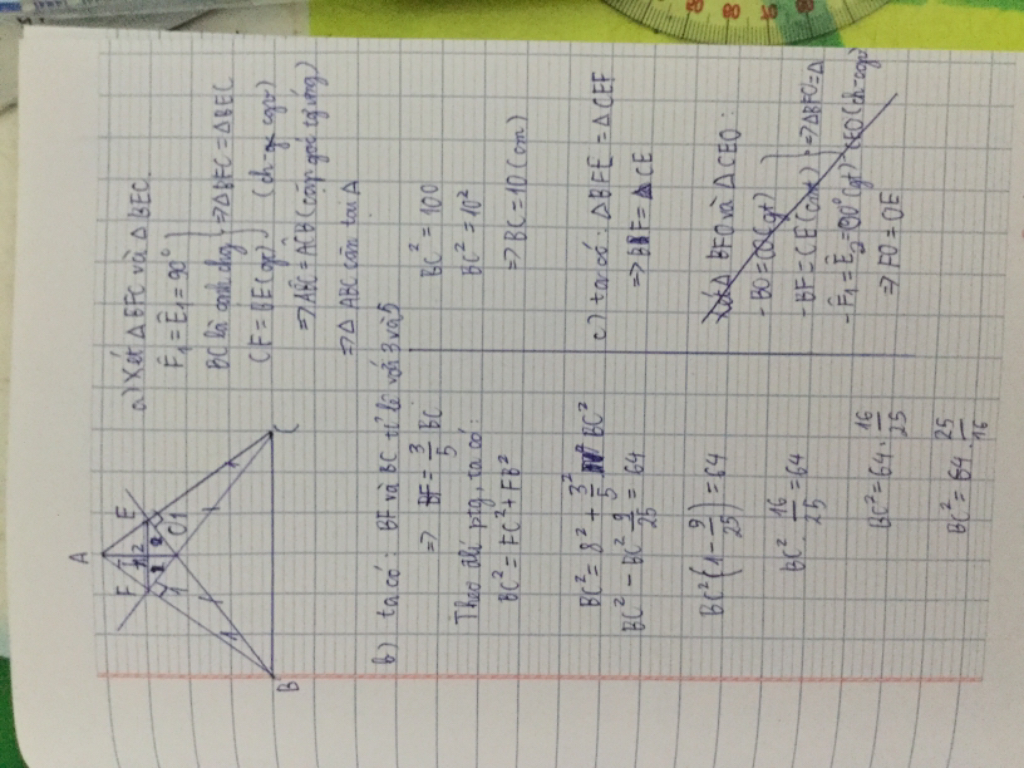 A
F
E
1 2
2
1
O
1
1
1
B
C
a) Xét Δ BFC và Δ BEC.
F̂₁ = Ê₁ = 90°
BC là cạnh chg } ⇒ Δ BFC = Δ BEC
CF = BE (gt) (ch-gn)
⇒ AB̂C = AĈB (cặp góc tg ứng)
⇒ Δ ABC cân tại A
b) ta có: BF và BC tỉ lệ với 3 và 5
⇒ BF = 3/5 BC
Theo đlí ptg, ta có:
BC² = FC² + FB²
BC² = 8² + 3²/5 BC²
BC² - BC² 9/25 = 64
BC² (1 - 9/25) = 64
BC² . 16/25 = 64
BC² = 64 . 16/25
BC² = 64 . 25/16
BC² = 100
BC² = 10²
⇒ BC = 10 (cm)
c) ta có: Δ BFE = Δ CEF
⇒ BF = CE
Xét Δ BFO và Δ CEO:
- BO = CO (gt)
- BF = CE (cmt) } ⇒ Δ BFO = Δ
- F̂₁ = Ê₂ = 90° (gt) CEO (ch-cgv)
⇒ FO = OE
80
70